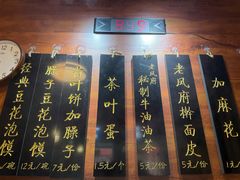 经典豆花泡馍
/碗
臊子豆花泡馍
12元/碗
叶饼加臊子
7元/份
茶叶蛋
1.5元/个
老凤府
秘制牛油油茶
5元/碗
老凤府擀面皮
5元/份
加麻花
1元/